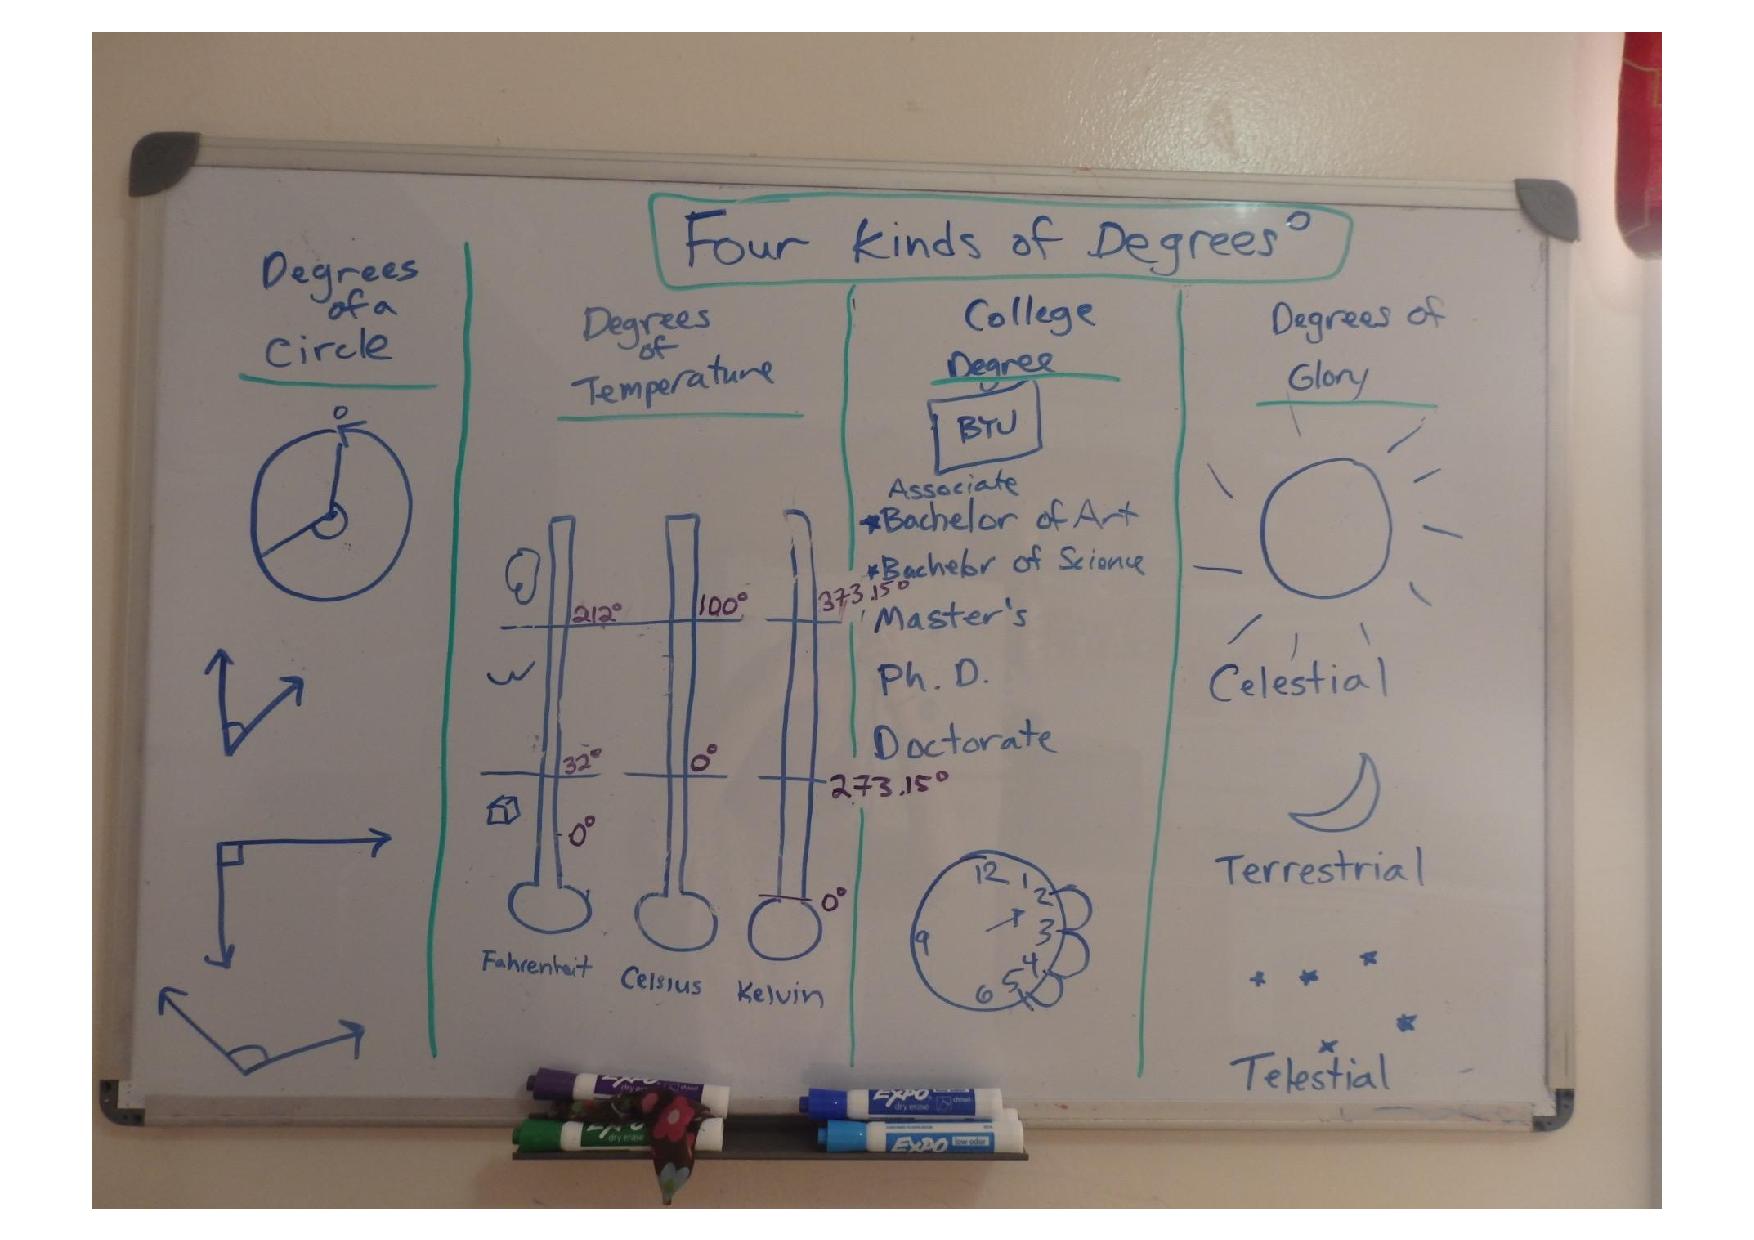 Four Kinds of Degrees°
Degrees
of a
Circle
0
Degrees
of
Temperature
212°
100°
373.15°
32°
0°
273.15°
0°
0°
Fahrenheit
Celsius
Kelvin
College
Degree
BYU
Associate
*Bachelor of Art
*Bachelor of Science
Master's
Ph. D.
Doctorate
12
1
2
3
4
5
6
9
Degrees of
Glory
Celestial
Terrestrial
Telestial
EXPO
dry erase
EXPO
dry erase
EXPO
dry erase
EXPO
low odor